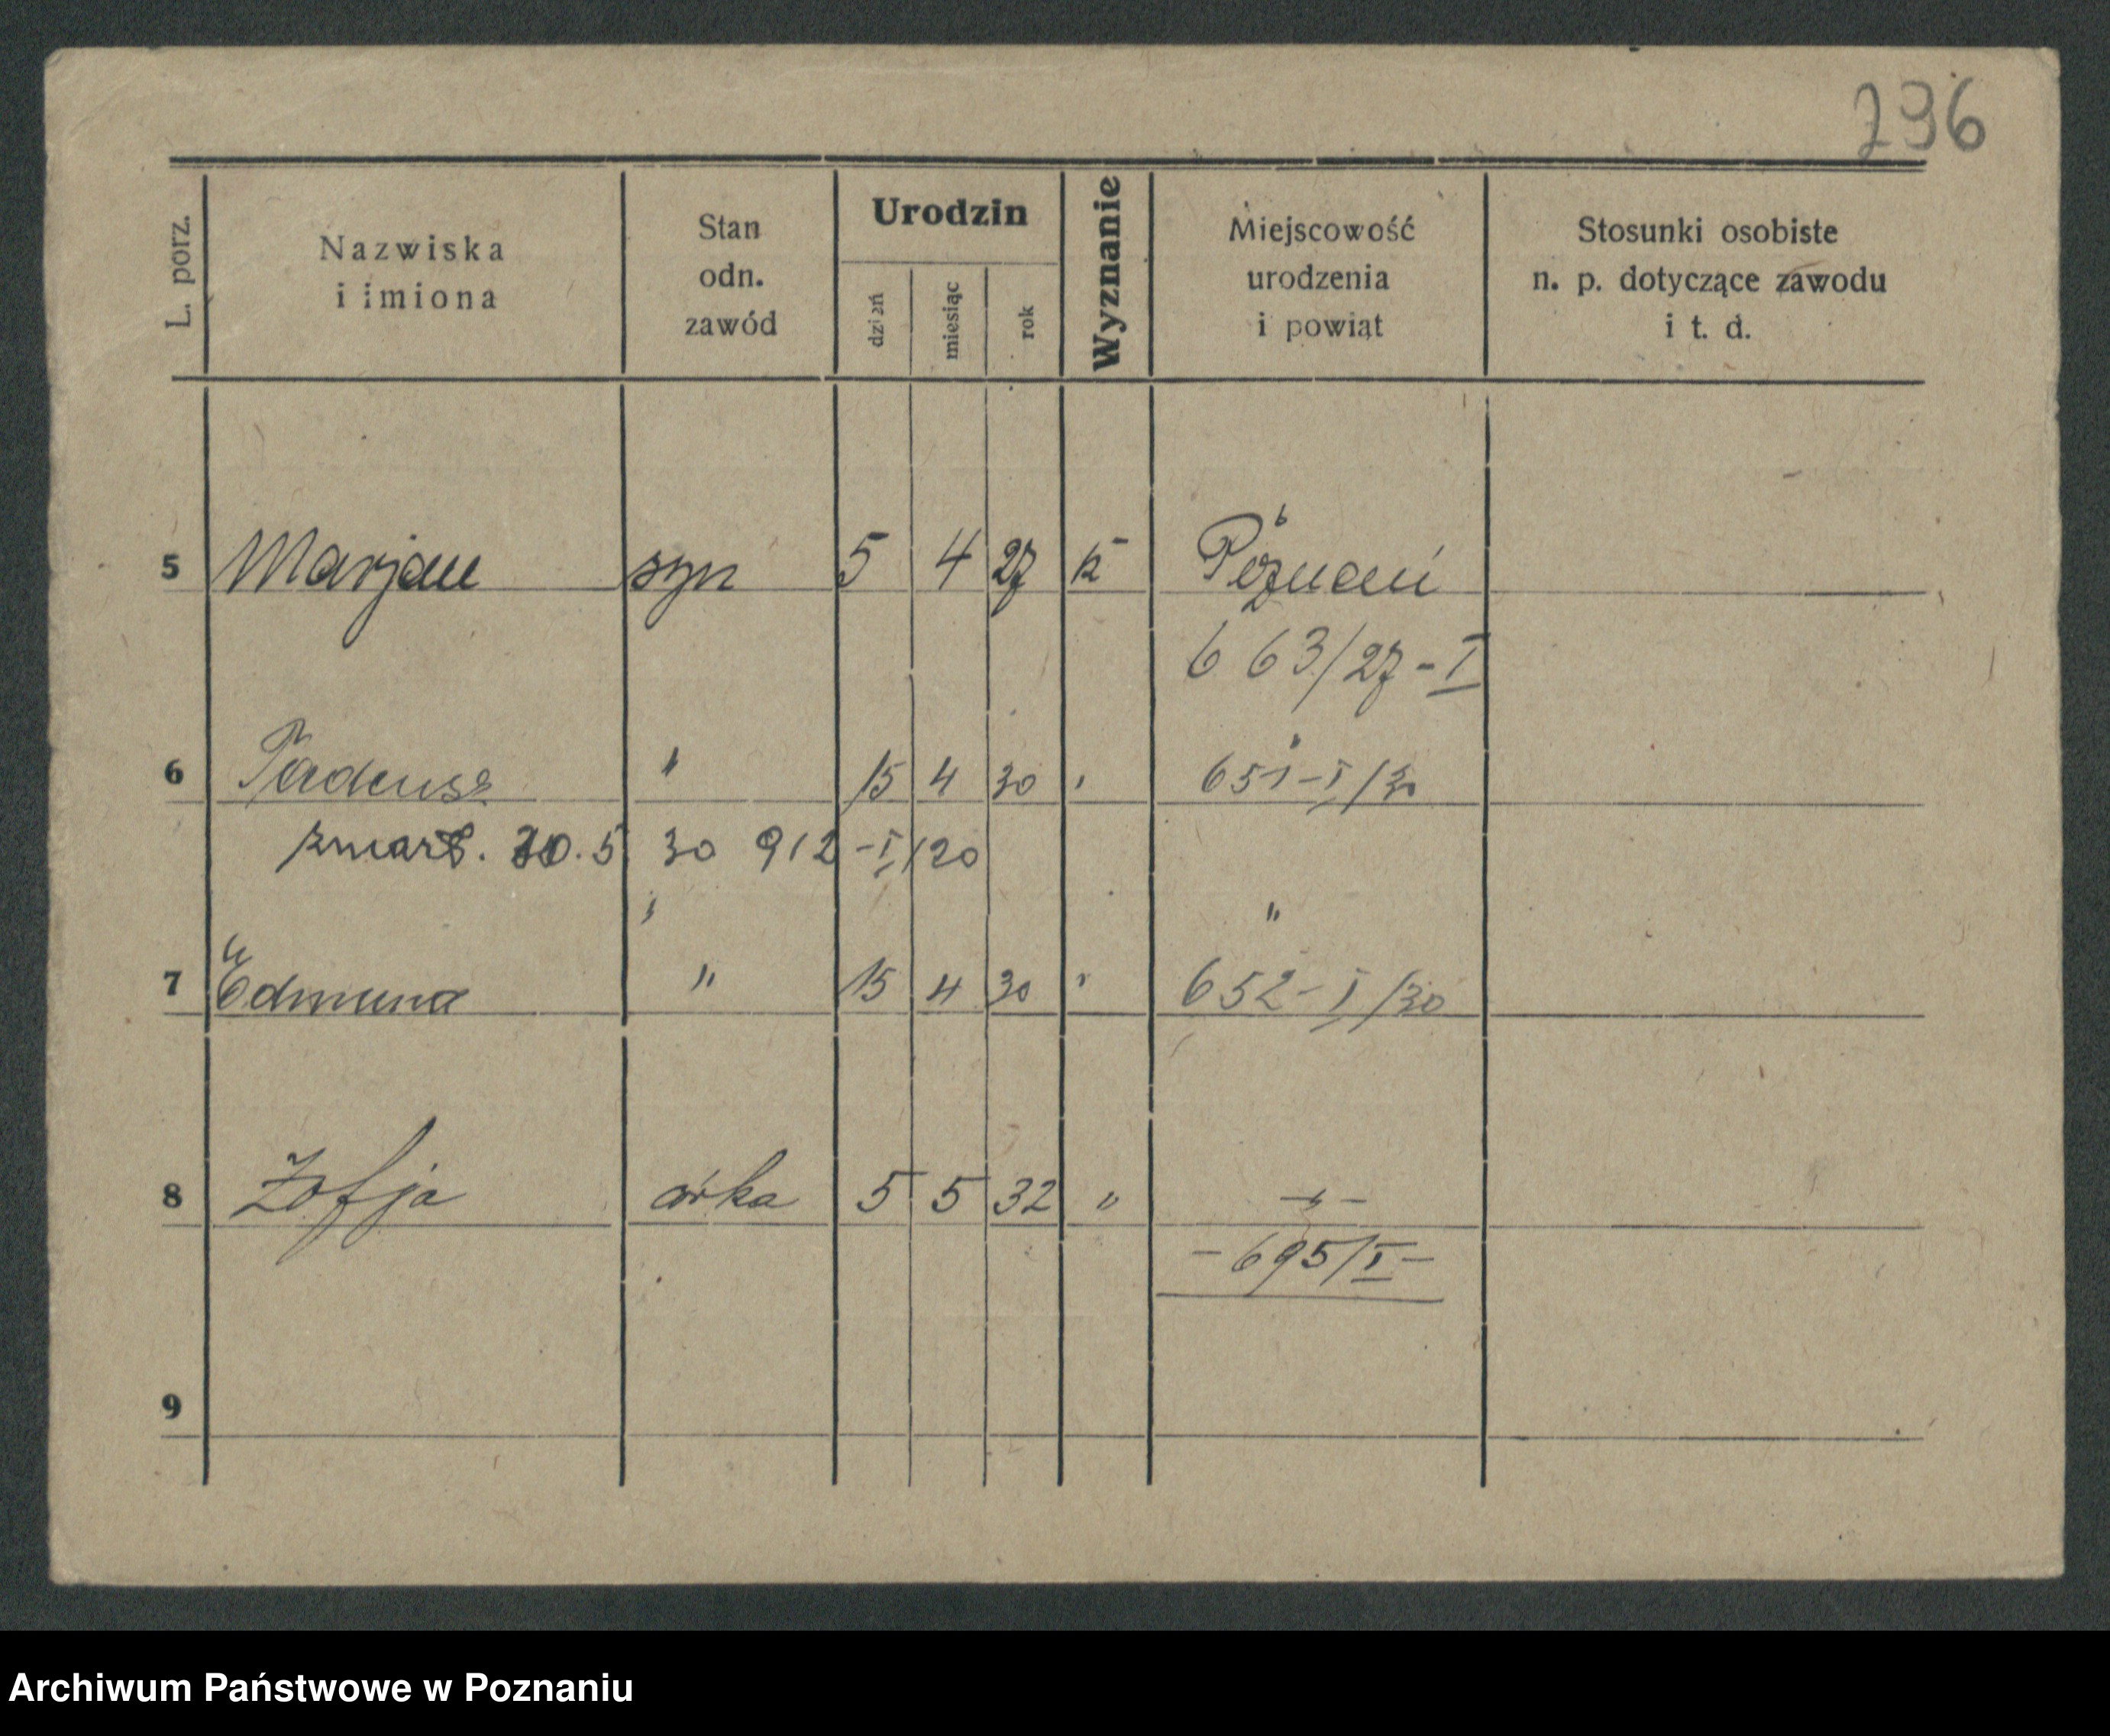 296
L. porz.
Nazwiska
i imiona
Stan
odn.
zawód
Urodzin
dzień
miesiąc
rok
Wyznanie
Miejscowość
urodzenia
i powiat
Stosunki osobiste
n. p. dotyczące zawodu
i t. d.
5 Marjan syn 5 4 27 k Poznań
663/27-I
6 Tadeusz " 15 4 30 " 651-I/30
zmarł. 30.5 30 912-I/20
" "
7 Edmund " 15 4 30 " 652-I/30
8 Zofja córka 5 5 32 " -"-
-695/I-
9
Archiwum Państwowe w Poznaniu